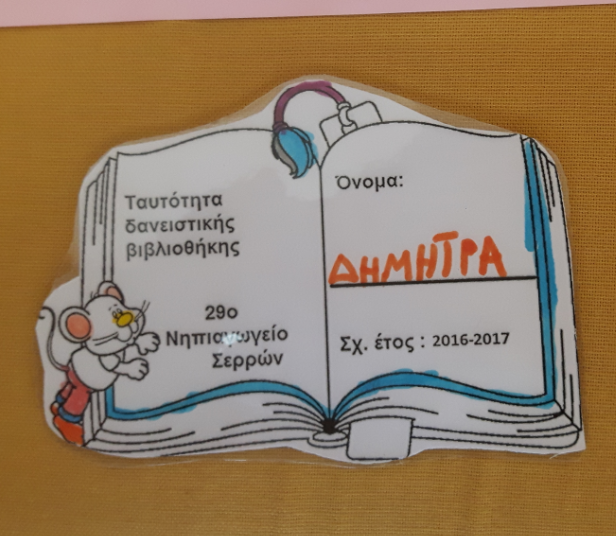 Ταυτότητα
δανειστικής
βιβλιοθήκης
29ο
Νηπιαγωγείο
Σερρών
Όνομα:
ΔΗΜΗΤΡΑ
Σχ. έτος : 2016-2017